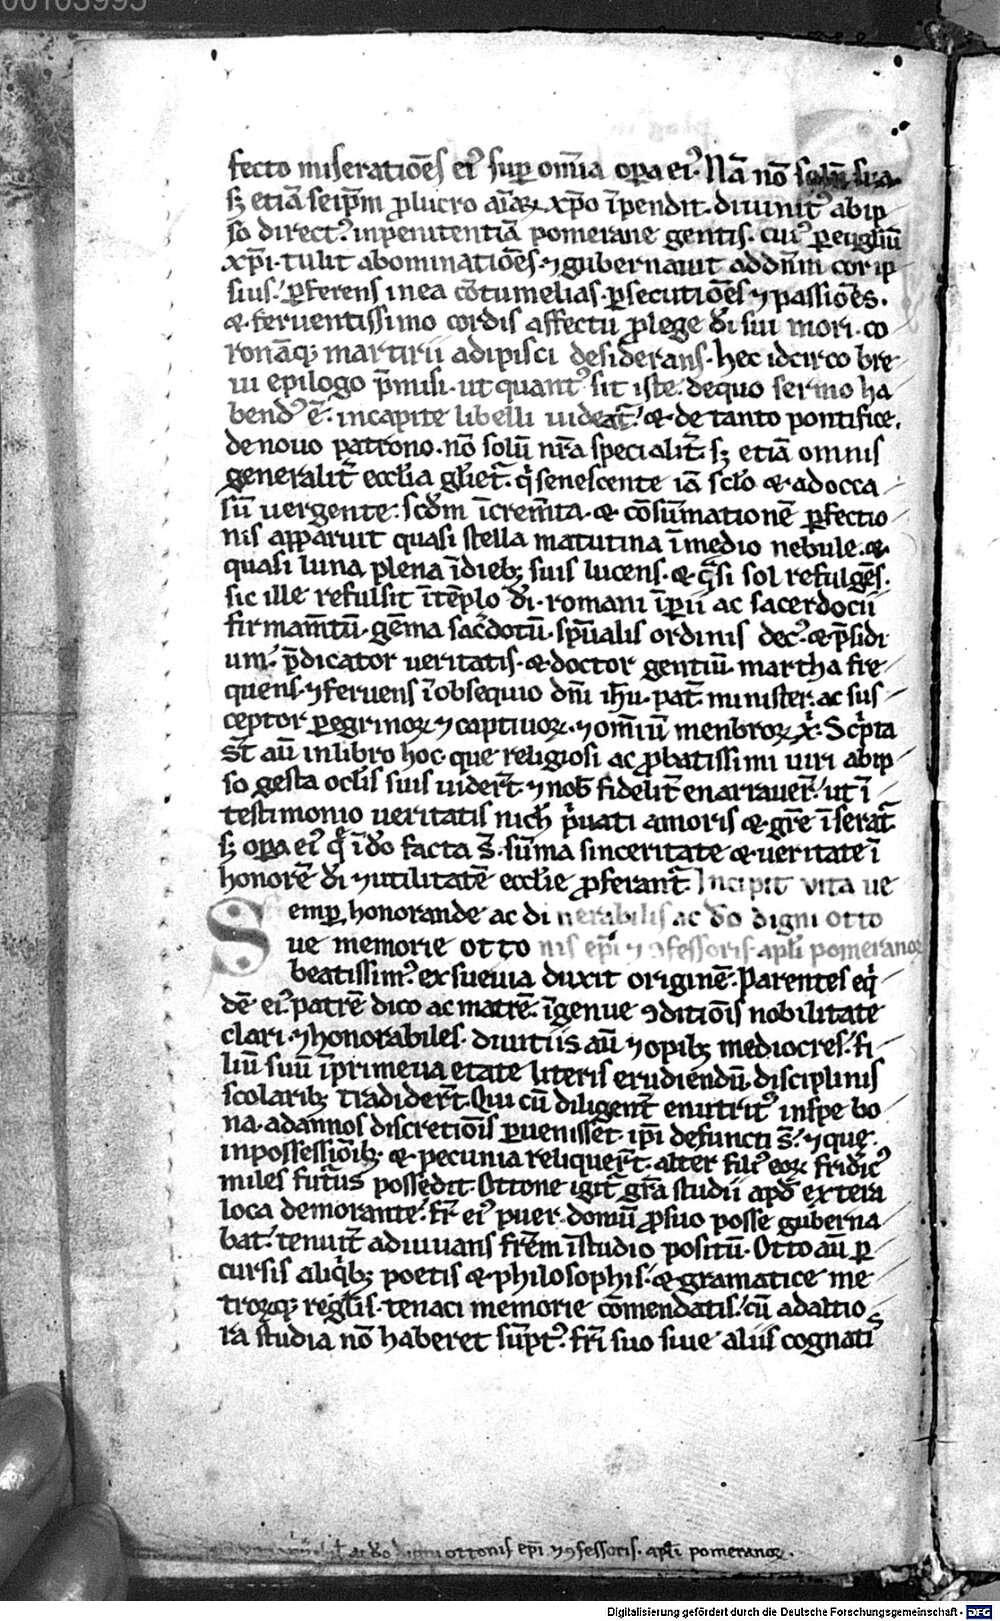 00103995
fecto miseratiōēs ei᷒ suꝑ om̄ia oꝑa ei᷒· Nā nō solū sua·
sꝫ etiā seip̄m ꝓlucro aīaꝝ xp̄o īpendit· diuinit᷒ abip
so direct᷒· inpenitentiā pomerane gentis· cui᷒ ꝑeuglīū
xp̄i· tulit abominatiōēs· ⁊gubernauit addn̄m cor ip
sius· ꝑferens inea cōtumelias· ꝑsecutiōēs ⁊ passiōēs·
& feruentissimo cordis affectu ꝓlege dī sui mori· co
ronāqꝫ martirii adipisci desiderans· hec idcirco bre
ui epilogo p̄misi· ut quant᷒ sit iste· dequo sermo ha
bend᷒ ē· incapite libelli uideat᷑· & de tanto pontifice·
denouo patrono· nō solū nr̄a specialit᷑· sꝫ etiā omnis
generalit᷑ ecclīa gl̄iet᷑· qͥ senescente iā sclō & adocca
sū uergente· scd̄m īcrem̄ta· & cōsūmationē ꝑfectio
nis apparuit quasi stella matutina īmedio nebule· &
quasi luna plena īdiebꝫ suis lucens· & qͣsi sol refulgēs·
sic ille refulsit ītēplo dī· romani īꝑii ac sacerdocii
firmam̄tū· gēma sac̄dotū· sp̄ualis ordinis dec᷒· & p̄sidi
um· p̄dicator ueritatis· & doctor gentiū· martha fre
quens· ⁊feruens īobsequio dn̄i ih̄u· pat᷑ minister· ac sus
ceptor ꝑegrinoꝝ ⁊ captiuoꝝ· ⁊ om̄iū menbroꝝ xͥ· Scͥpta
s̄t aū inlibro hoc· que religiosi ac ꝓbatissimi uiri abip
so gesta oclīs suis uider̄t· ⁊ nob̄ fidelit᷑ enarrauer̄· ut ī
testimonio ueritatis nich̄ pͥuati amoris & gr̄e īserat᷑
sꝫ oꝑa ei᷒ qͥ īdō facta s̄· sūma sinceritate & ueritate ī
honorē dī ⁊utilitatē ecclīe ꝓferant᷑ Incipit vita ue
Semꝑ honorande ac di nerabilis ac dō digni otto
ue memorie otto nis ep̄i ⁊ ꝯfessoris apl̄i pomeranoꝝ
beatissim᷒ ex sueuia duxit originē· Parentes eqͥ
dē ei᷒ patrē dico ac matrē· īgenue ꝯditiōis nobilitate
clari· ⁊honorabiles· diuitiis aū ⁊opibꝫ mediocres· fi
liū suū īprimeua etate literis erudiendū disciplinis
scolaribꝫ tradider̄t· Qui cū diligent᷑ enutrit᷒ inspe bo
na· adannos discretiōis ꝑuenisset· ip̄i defuncti s̄· ⁊ que
inpossessiōibꝫ & pecunia reliquer̄t· alter fili᷒ eoꝝ frid̄ic᷒
miles fut᷑us possedit· Ottone igit᷑ gr̄a studii apd̄ extera
loca demorante· fr̄ ei᷒ puer· domū ꝓsuo posse guberna
bat· tenuit᷑ adiuuans fr̄em īstudio positū· Otto aū ꝑ
cursis aliqͥbꝫ poetis & philosophis· & gramatice me
troꝝqꝫ regl̄is· tenaci memorie cōmendatis· cū adaltio
ra studia nō haberet sūpt᷒· fr̄i suo siue aliis cognatis
ac dō digni ottonis ep̄i ⁊ ꝯfessoris· apl̄i pomeranoꝝ·
Digitalisierung gefördert durch die Deutsche Forschungsgemeinschaft - DFG